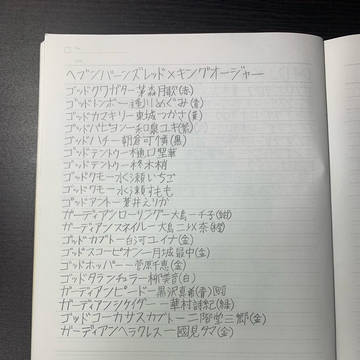 ヘブンバーンズレッド×キングオージャー
ゴッドクワガター茅森月歌(赤)
ゴッドトンボー逢川めぐみ(青)
ゴッドカマキリー東城つかさ(黄)
ゴッドパピヨンー和泉ユキ(紫)
ゴッドハチー朝倉可憐(黒)
ゴッドテントウー樋口聖華
ゴッドテントゥー柊木梢
ゴッドクモー水瀬いちご
ゴッドクモー水瀬すもも
ゴッドアントー蒼井えりか
ガーディアンローリングー大島一千子(紺)
ガーディアンスネイルー大島二以奈
ゴッドカブトー白河ユイナ(金)
ゴッドスコーピオンー月城最中(金)
ゴッドホッパーー菅原千恵(金)
ゴッドタランチュラー柳美音(白)
ガーディアンピードー黒沢真希(青)
ガーディアンシケイダー華村詩紀(緑)
ゴッドコーカサスカブトー二階堂三郷(金)
ガーディアンヘラクレスー國見タマ(金)